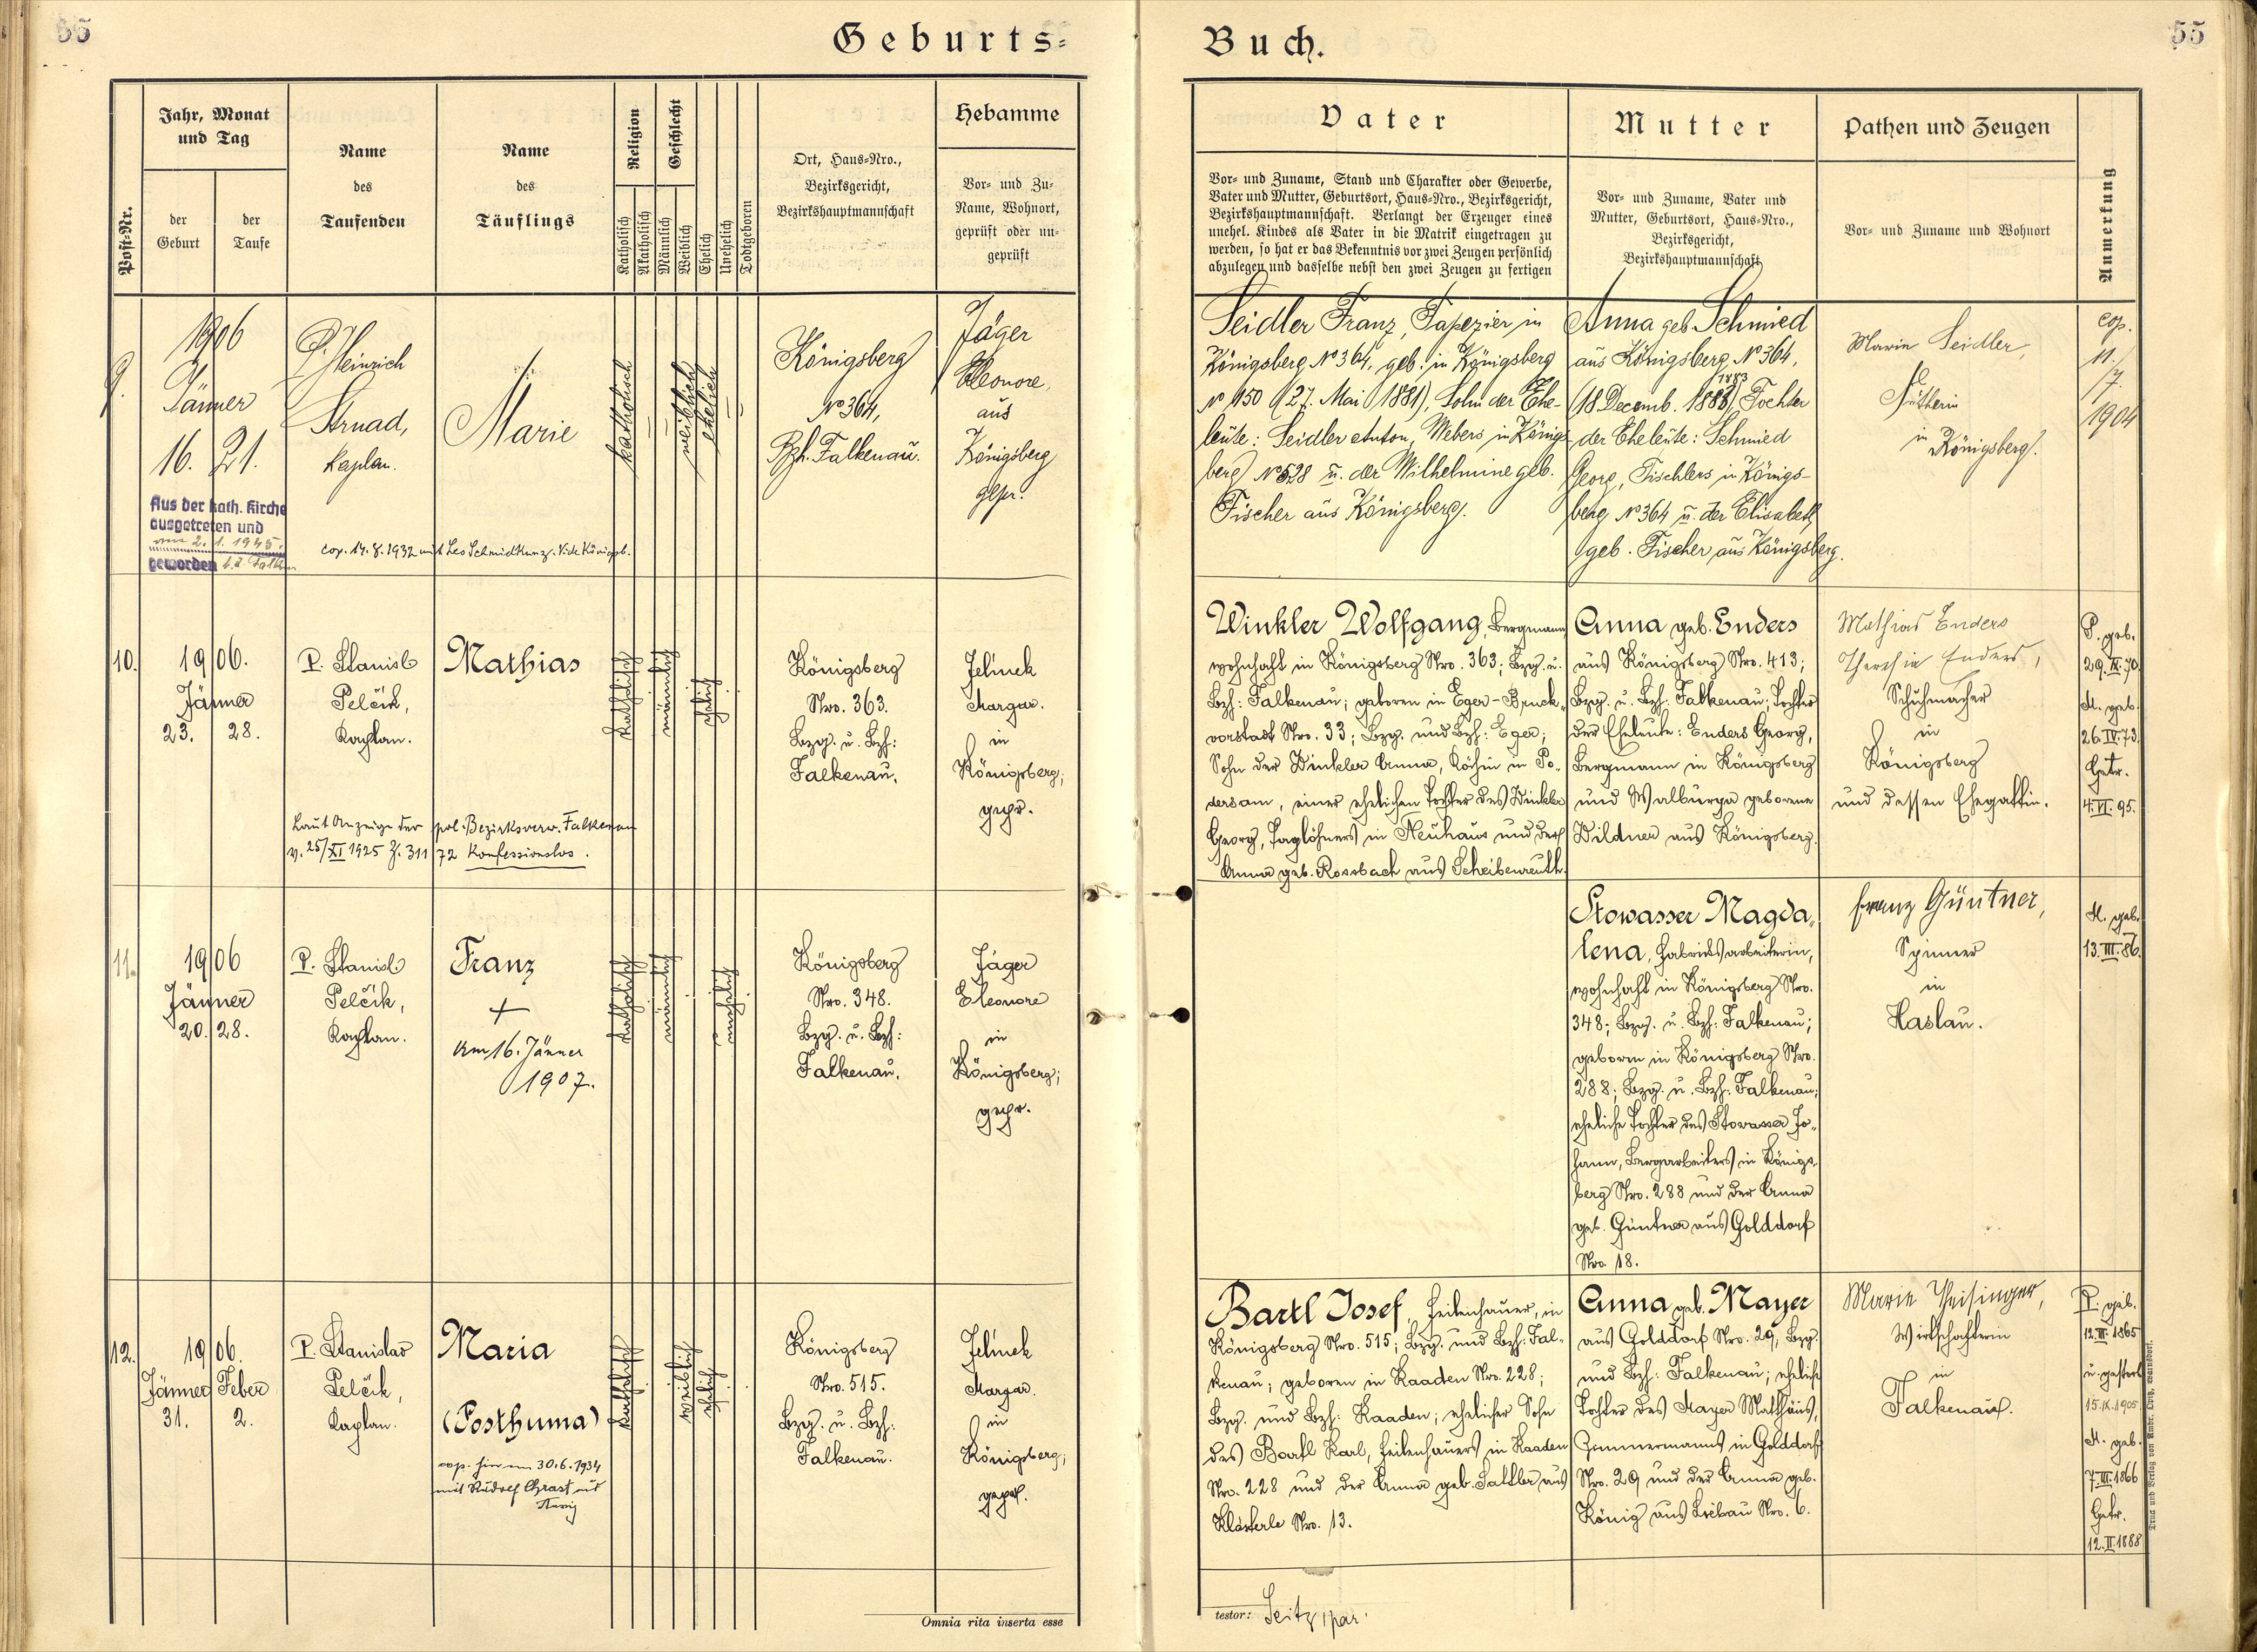 55
Geburts=
Post-Nr.
Jahr, Monat
und Tag
der
Geburt
der
Taufe
Name
des
Taufenden
Name
des
Täuflings
Religion
Katholisch
Akatholisch
Geschlecht
Männlich
Weiblich
Ehelich
Unehelich
Todtgeboren
Ort, Haus=Nro.,
Bezirksgericht,
Bezirkshauptmannschaft
Hebamme
Vor= und Zu=
Name, Wohnort,
geprüft oder un=
geprüft
9.
1906
Jänner
16. 21.
Aus der kath. Kirche
ausgetreten und
am 2. 1. 1945.
geworden
P. Heinrich
Strnad,
Kaplan.
Marie
cop. 14.8.1932 mit Leo Schmidkunz. Vide Königsb.
katholisch
weiblich
ehelich
Königsberg
No 364,
Bzh. Falkenau.
Jäger
Eleonore,
aus
Königsberg
gepr.
10.
1906.
Jänner
23. 28.
P. Stanisl
Pelčik,
Kaplan.
Mathias
Laut Anzeige der pol. Bezirksverw. Falkenau
v. 25/XI 1925 Z. 311/72 Konfessionslos.
katholisch
männlich
ehelich
Königsberg
Nro. 363.
Bzg. u. Bzh:
Falkenau.
Jelinek
Margar.
in
Königsberg;
gepr.
11.
1906
Jänner
20. 28.
P. Stanisl
Pelčik,
Kaplan.
Franz
+
Am 16. Jänner
1907.
katholisch
männlich
unehelich
Königsberg
Nro. 348.
Bzg. u. Bzh:
Falkenau.
Jäger
Eleonore
in
Königsberg;
gepr.
12.
1906.
Jänner Feber
31. 2.
P. Stanislas
Pelčik,
Kaplan.
Maria
(Posthuma)
cop. hier am 30.6.1934
mit Rudolf Grast
katholisch
weiblich
ehelich
Königsberg
Nro. 515.
Bzg. u. Bzh:
Falkenau.
Jelinek
Margar.
in
Königsberg;
gepr.
Omnia rita inserta esse
Buch.
55
Vater
Vor= und Zuname, Stand und Charakter oder Gewerbe,
Vater und Mutter, Geburtsort, Haus=Nro., Bezirksgericht,
Bezirkshauptmannschaft. Verlangt der Erzeuger eines
unehel. Kindes als Vater in die Matrik eingetragen zu
werden, so hat er das Bekenntnis vor zwei Zeugen persönlich
abzulegen und dasselbe nebst den zwei Zeugen zu fertigen
Mutter
Vor= und Zuname, Vater und
Mutter, Geburtsort, Haus=Nro.,
Bezirksgericht,
Bezirkshauptmannschaft
Pathen und Zeugen
Vor= und Zuname und Wohnort
Anmerkung
Seidler Franz, Tapezier in
Königsberg No 364, geb. in Königsberg
No 150 (27. Mai 1881), Sohn der Ehe-
leute: Seidler Anton, Webers in Königs-
berg No 528 u. der Wilhelmine geb.
Fischer aus Königsberg.
Anna geb. Schmied
aus Königsberg No 364,
1883
(18 Decemb. 1883) Tochter
der Eheleute: Schmied
Georg, Tischlers in Königs-
berg No 364 u. der Elisabeth
geb. Fischer aus Königsberg.
Marie Seidler,
in
Königsberg.
cop.
11./
7.
1904
Winkler Wolfgang, Bergmann
wohnhaft in Königsberg Nro. 363; Bzg. u.
Bzh: Falkenau; geboren in Eger-Bruck„
vorstadt Nro. 33; Bzg. und Bzh: Eger;
Sohn der Winkler Anna, Köchin in Po„
dersam, einer ehelichen Tochter des Winkler
Georg, Taglöhners in Neuhaus und der
Anna geb. Rossbach aus Scheibenreuth.
Anna geb. Enders
aus Königsberg Nro. 413;
Bzg. u. Bzh: Falkenau; Tochter
der Eheleute: Enders Georg,
Bergmann in Königsberg
und Walburga geborene
Wildner aus Königsberg.
Mathias Enders
Theresia Enders,
Schuhmacher
in
Königsberg
und dessen Ehegattin.
P. geb.
29.IX.70.
M. geb.
26.IV.73.
Getr.
4.VI.95.
Stowasser Magda„
lena, Fabriksarbeiterin,
wohnhaft in Königsberg Nro.
348; Bzg. u. Bzh: Falkenau;
geboren in Königsberg Nro.
288; Bzg. u. Bzh: Falkenau;
eheliche Tochter des Stowasser Jo„
hann, Bergarbeiters in Königs„
berg Nro. 288 und der Anna
geb. Güntner aus Golddorf
Nro. 18.
Franz Güntner,
Spinner
in
Haslau.
M. geb.
13.III.86.
Bartl Josef, Feilenhauer, in
Königsberg Nro. 515; Bzg. und Bzh: Fal„
kenau; geboren in Kaaden Nro. 228;
Bzg. und Bzh: Kaaden; ehelicher Sohn
des Bartl Karl, Feilenhauers in Kaaden
Nro. 228 und der Anna geb. Sattler aus
Klösterle Nro. 13.
Anna geb. Mayer
aus Golddorf Nro. 29, Bzg.
und Bzh: Falkenau; eheliche
Tochter des Mayer Matthäus,
Zimmermanns in Golddorf
Nro. 29 und der Anna geb.
König aus Liebau Nro. 6.
Marie Theisinger,
Wirtschafterin
in
Falkenau.
P. geb.
12.III.1865
u. gestorb.
15.IX.1905
M. geb.
7.III.1866
Getr.
12.II.1888
testor: Seitz, par.
Druck und Verlag von Ambr. Opitz, Warnsdorf.